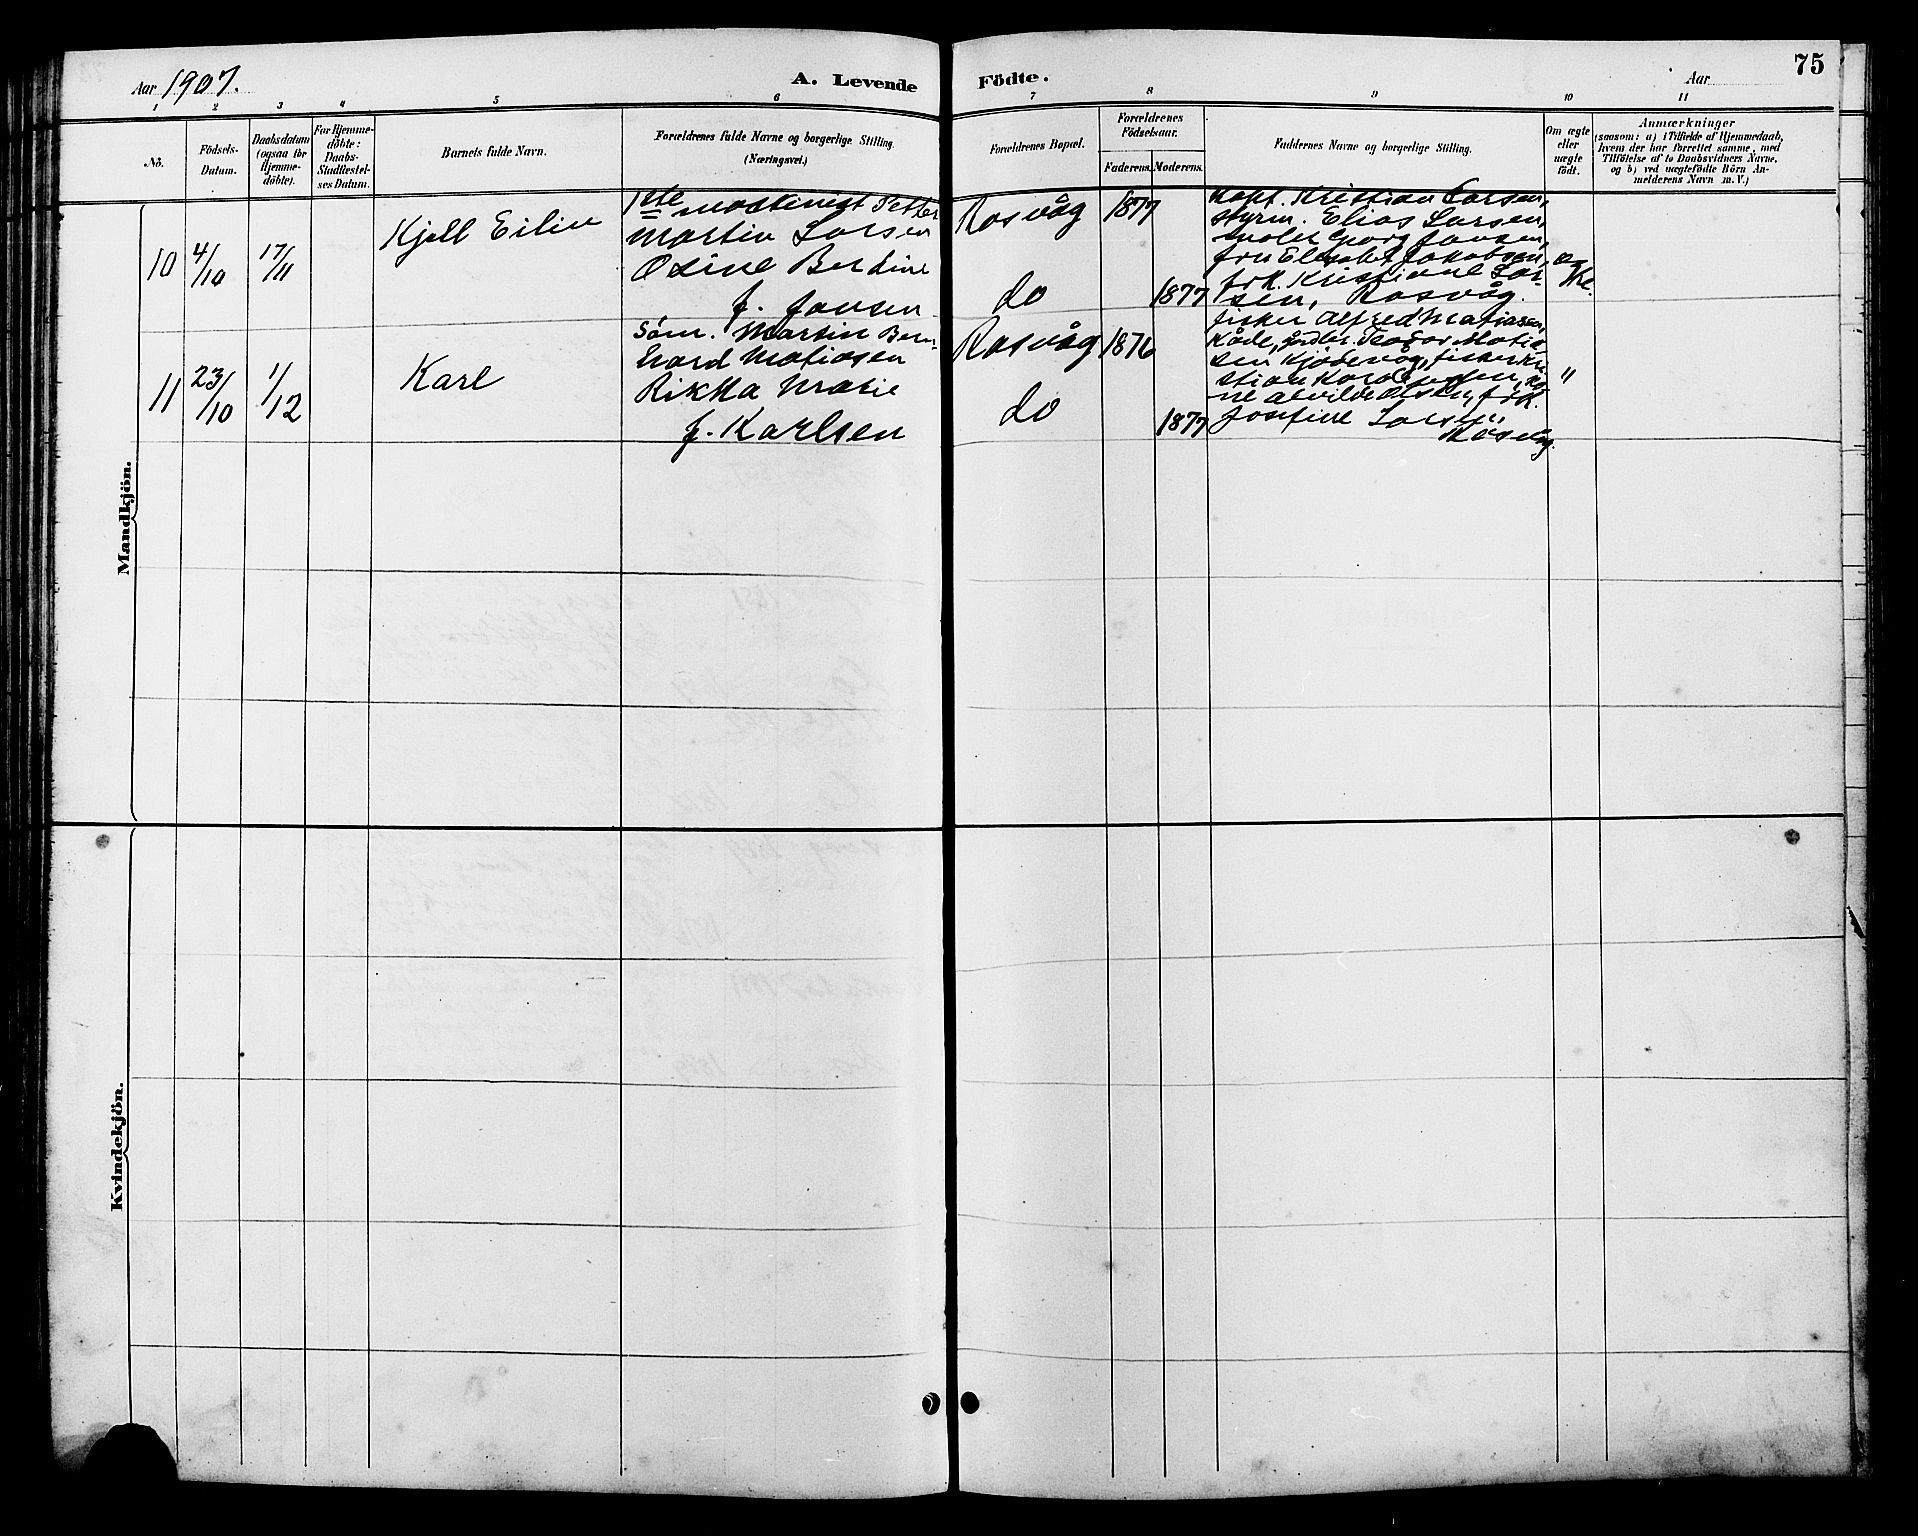 Aar 1907.
A. Levende
Födte.
Aar
75
1 2 3 4 5 6 7 8 9 10 11
No.
Födsels-
Datum.
Daabsdatum
(ogsaa for
Hjemme-
döbte).
For Hjemme-
döbte:
Daabs-
Stadfæstel-
ses Datum.
Barnets fulde Navn.
Forældrenes fulde Navne og borgerlige Stilling.
(Næringsvei.)
Forældrenes Bopæl.
Forældrenes
Födselsaar.
Faderens. Moderens.
Faddernes Navne og borgerlige Stilling.
Om ægte
eller
uægte
født.
Anmærkninger
(saasom: a) i Tilfælde af Hjemmedaab,
hvem der har forrettet samme, med
Tilföielse af to Daabsvidners Navne,
og b) ved uægtefödte Börn An-
melderens Navn m. V.)
Mandkjön.
10
4/10
17/11
Kjell Eiliv
1ste maskinist Petter
Martin Larsen
Oxine Berdine
f. Jansen
Rosvåg
do
1877
1877
Kapt. Kristian Larsen,
styrm. Elias Larsen,
Georg Jansen,
fru Jakobsen,
frk. Kristiane Lar-
sen, Rosvåg.
ægte.
11
23/10
1/12
Karl
Søm. Martin Bern-
hard Matiasen
Rikka Marie
f. Karlsen
Rosvåg
do
1876
1877
fisker Alfred Matiasen,
Matia-
sen Kjødevåg, fisker Kri-
stian ko-
ne Alvilde Olsen, frk.
Josefine Larsen
"
Kvindekjön.